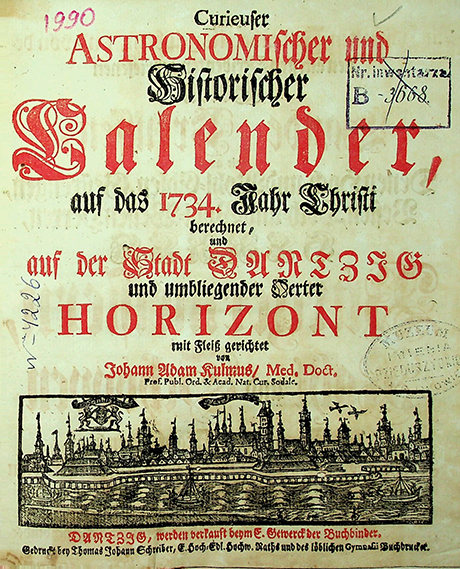 1990
Curieuser
ASTRONOMIscher und
Historischer
Nr. inwentarza
B-3668.
Calender,
auf das 1734. Jahr Christi
berechnet,
und
auf der Stadt DANTZIG
und umbliegender Oerter
HORIZONT
mit Fleiß gerichtet
von
Johann Adam Kulmus/ Med. Doct.
Prof. Publ. Ord. & Acad. Nat. Cur. Sodale.
DANTZIG, werden verkauft beym E. Gewerck der Buchbinder.
Gedruckt bey Thomas Johann Schreiber, E. Hoch-Edl. Hochw. Raths und des löblichen Gymnasii Buchdrucker.